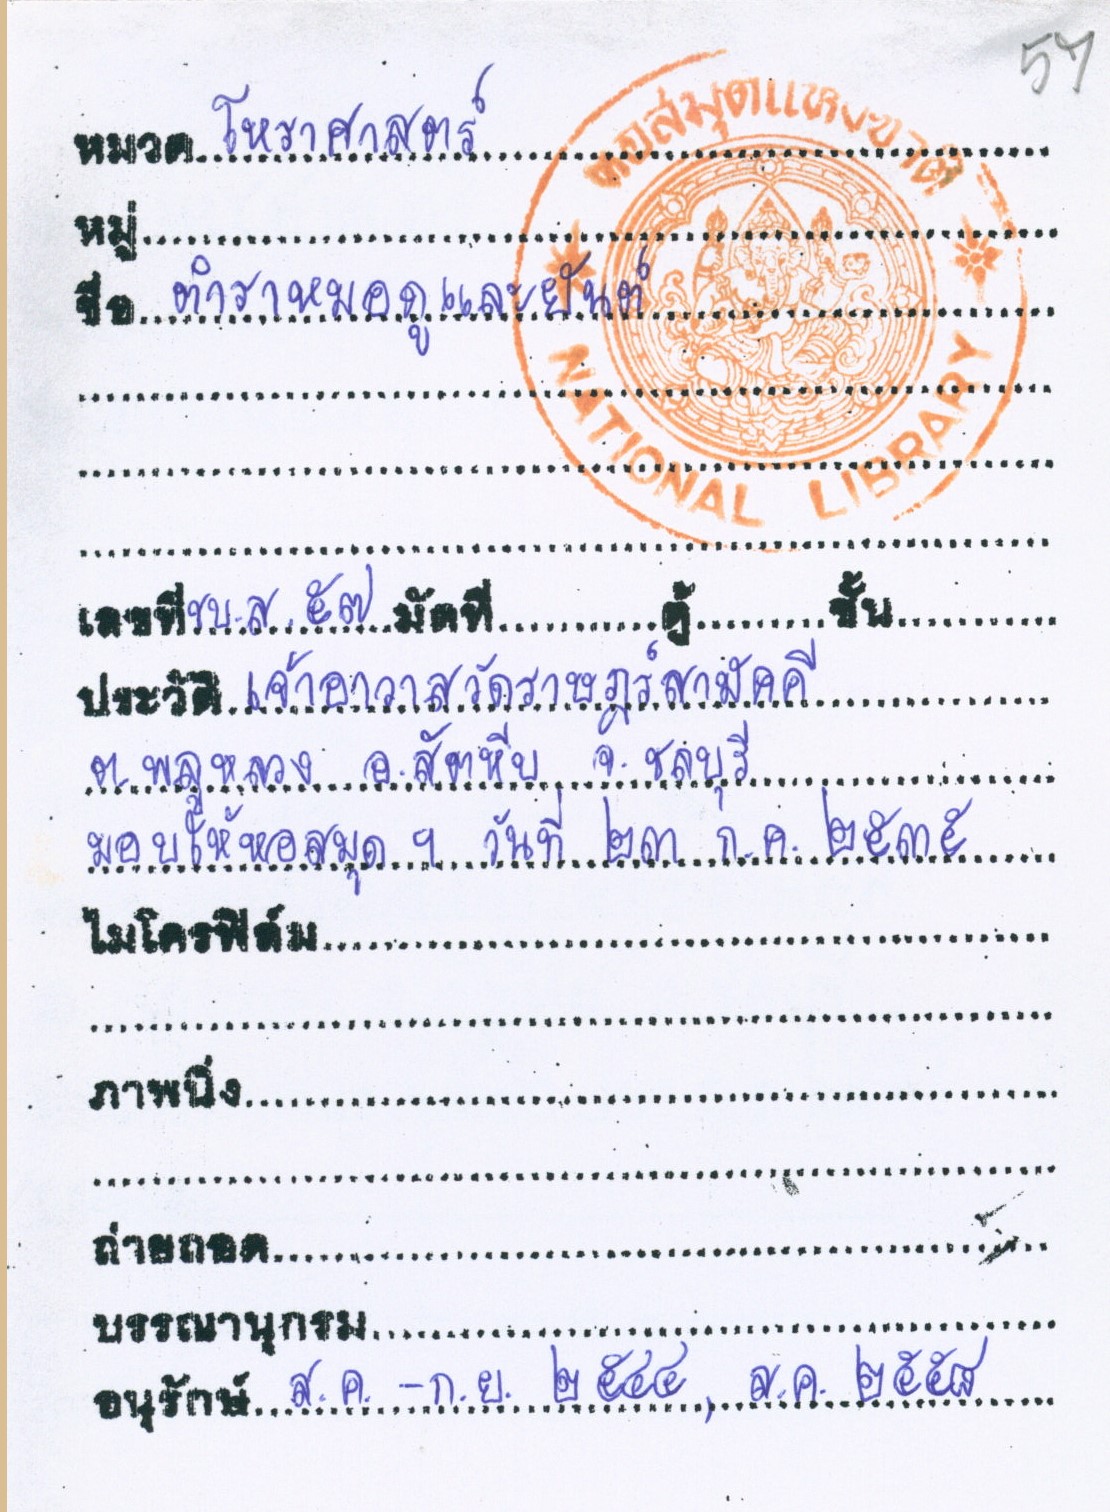 57
หอสมุดแห่งชาติ
NATIONAL LIBRARY
หมวด โหราศาสตร์
หมู่
ชื่อ ตำราหมอดูและยันต์
เลขที่ ชบ.ส. ๕๗ มัดที่ ตู้ ชั้น
ประวัติ เจ้าอาวาสวัดราษฎร์สามัคคี
ต.พลูหลวง อ.สัตหีบ จ.ชลบุรี
มอบให้หอสมุด ฯ วันที่ ๒๓ ก.ค. ๒๕๓๕
ไมโครฟิล์ม
ภาพนิ่ง
ถ่ายถอด
บรรณานุกรม
อนุรักษ์ ส.ค. - ก.ย. ๒๕๔๔, ส.ค. ๒๕๕๘